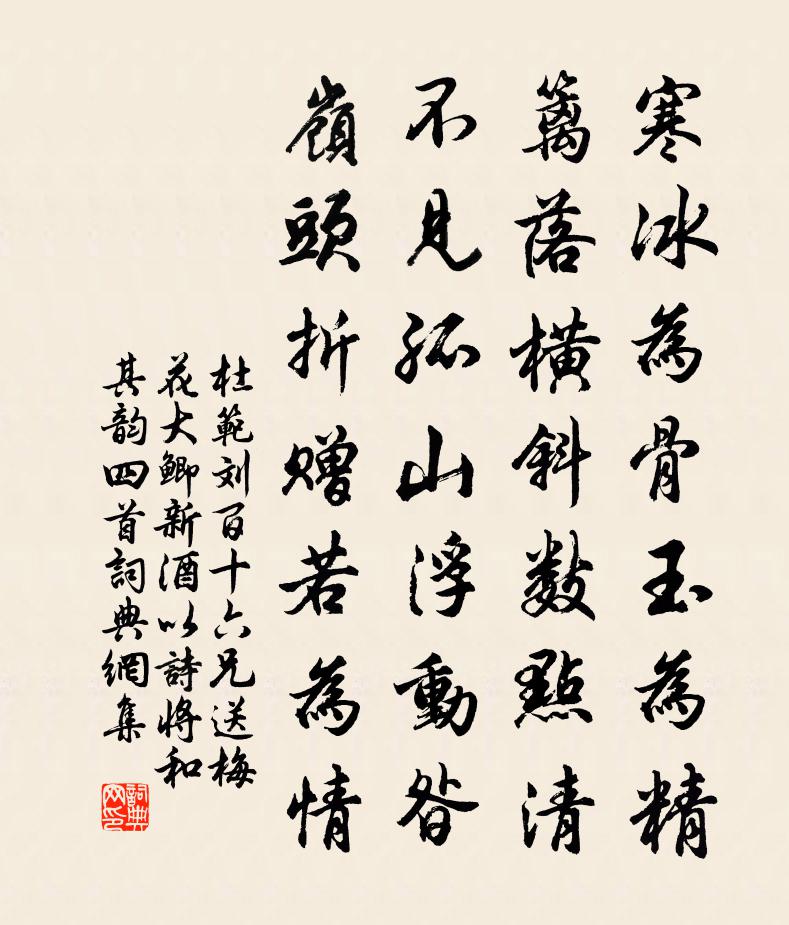 寒冰為骨玉為精
籬落橫斜數點清
不見孤山浮動昝
嶺頭折贈若為情
杜範刘百十六兄送梅
花大鯽新酒以詩將和
其韵四首詞典網集
詞典
网印